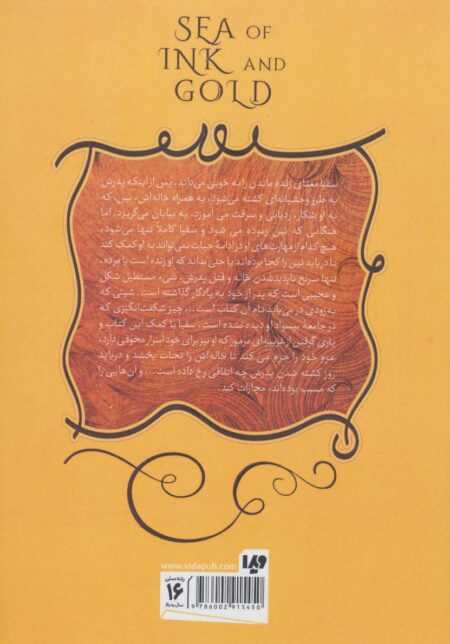 SEA OF
INK AND
GOLD
سفیا معنای زنده ماندن را به خوبی می‌داند. پس از اینکه پدرش
به طرز وحشیانه‌ای کشته می‌شود، به همراه خاله‌اش، نین، که
به او شکار، ردیابی و سرقت می آموزد، به بیابان می‌گریزد. اما
هنگامی که نین ربوده می شود و سفیا کاملاً تنها می‌شود،
هیچ کدام از مهارت‌های او در ادامۀ حیات نمی‌تواند به او کمک کند
تا دریابد نین را کجا برده‌اند یا حتی بداند که او زنده است یا مرده.
تنها سرنخ ناپدید شدن خاله و قتل پدرش، شیء مستطیل شکل
و عجیبی است که پدر از خود به یادگار گذاشته است. شیئی که
به‌زودی در می‌یابد نام آن کتاب است... چیز شگفت‌انگیزی که
در جامعۀ بیسواد او دیده نشده است. سفیا با کمک این کتاب و
یاری گرفتن از غریبه‌ای مرموز که او نیز برای خود اسرار مخوفی دارد،
عزم خود را جزم می کند تا خاله‌اش را نجات بخشد و دریابد
روز کشته شدن پدرش چه اتفاقی رخ داده است... و آن‌هایی را
که مسبب بوده‌اند، مجازات کند.
www.vidapub.com
ویدا
رده سنی
۱۶
سال به بالا
9786002915450